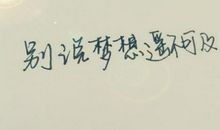 别说梦想遥不可及